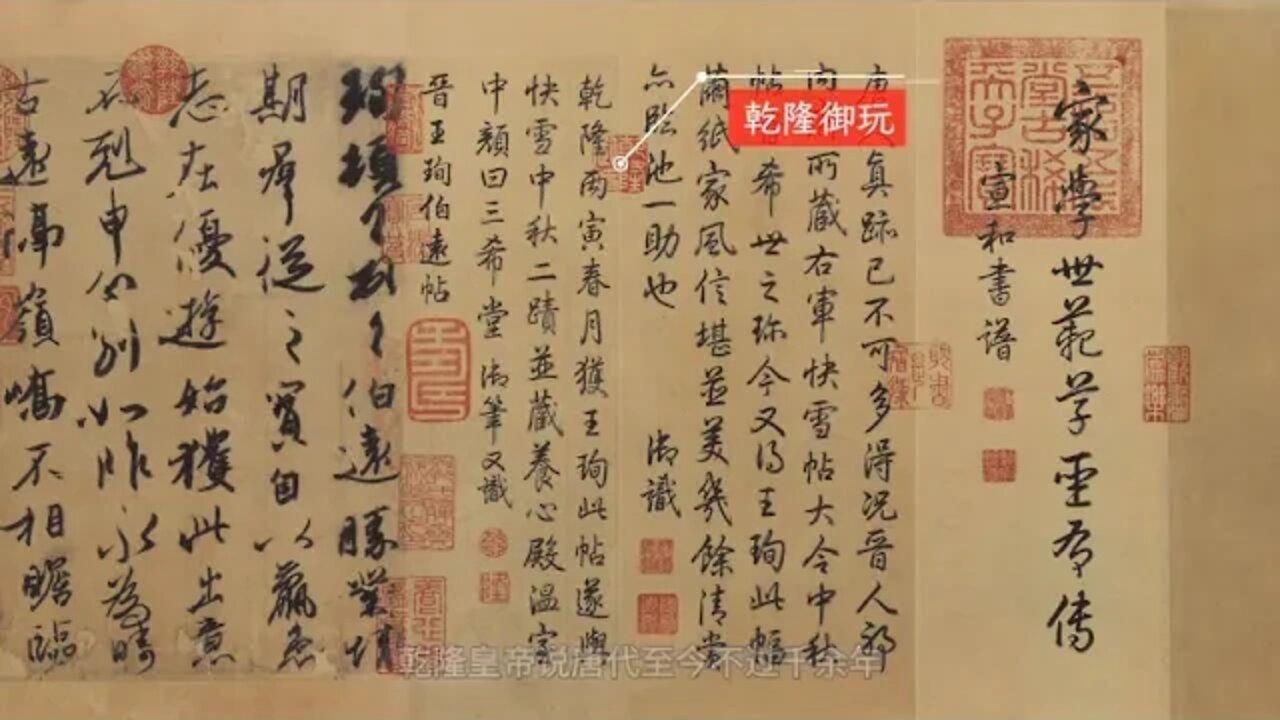 家學世範草聖有傳
宣和書譜
唐人真跡已不可多得況晉人耶
内府所藏右軍快雪帖大令中秋
帖皆希世之珍今又得王珣此幅
繭紙家風信堪並美幾餘清賞
亦臨池一助也 御識
乾隆丙寅春月獲王珣此帖遂與
快雪中秋二蹟並藏養心殿溫室
中顏曰三希堂 御筆又識
晉王珣伯遠帖
珣頓首頓首伯遠勝業情
期群從之寶自以羸患
志在優遊始獲此出意
不剋申分別如昨永為疇
古遠隔嶺嶠不相瞻臨
乾隆御玩
乾隆皇帝说唐代至今不过千余年